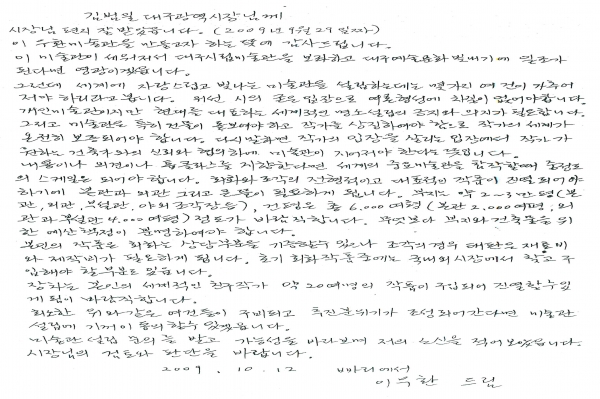 김범일 대구광역시장님께
시장님 편지 잘 받았습니다. (2009년 9월 29일자)
이우환미술관을 만들고자 하는 뜻에 감사드립니다.
이 미술관이 세워져서 대구시립미술관을 보좌하고 대구예술문화 빛내기에 일조가
된다면 영광이겠습니다.
그런데 세계에 자랑스럽고 빛나는 미술관을 설립하는데는 몇가지 여건이 갖추어
져야 하리라고 봅니다. 위선 시의 굳은 입장으로 여론형성에 차질이 없어야 합니다.
개인미술관이지만 현대를 대표하는 세계적인 명소설립의 긍지와 의지가 필요합니다.
그리고 미술관은 특히 건물이 돋보여야하고 작가를 상징하여야 함으로 작가의 세계가
온전히 보조되어야 합니다. 다시말하면 작가의 입장을 살리는 입장에서 작가가
원하는 건축가와의 신뢰와 협의하에 미술관이 지어져야 한다는 뜻입니다.
내용이나 외견이나 톱클라스를 지향한다면 세계의 중요미술관을 합작할 정도
의 스케일은 되어야 합니다. 회화와 조각의 전형적이고 대표적인 작품이 진열되어야
하기에 본관과 외관 그리고 큰 뜰이 필요하게 됩니다. 부지는 약 2~3만평(본
관, 외관, 부설관, 야외조각장등), 건평은 총 6,000여평(본관 2,000여평, 외
관과 부설관 4,000여평) 정도가 바람직합니다. 무엇보다 부지와 건축물을 위
한 예산책정이 분명하여야 합니다.
본인의 작품은 회화는 상당부분을 기증할수 있으나 조각의 경우 태반은 재료비
와 제작비가 필요하게 됩니다. 초기 회화작품중에는 국내외시장에서 찾고 구
입해야 할 부분도 있습니다.
장차는 본인의 세계적인 친구작가 약 20여명의 작품이 구입되어 진열할수 있
게 됨이 바람직합니다.
최소한 위와같은 여건들이 구비되고 추진분위기가 조성되어간다면 미술관
설립에 기꺼이 동의할수 있겠습니다.
미술관 설립 문의를 받고 가능성을 바라보며 저의 소신을 적어보았습니다.
시장님의 검토와 판단을 바랍니다.
2009. 10. 12 빠리에서
이우환 드림